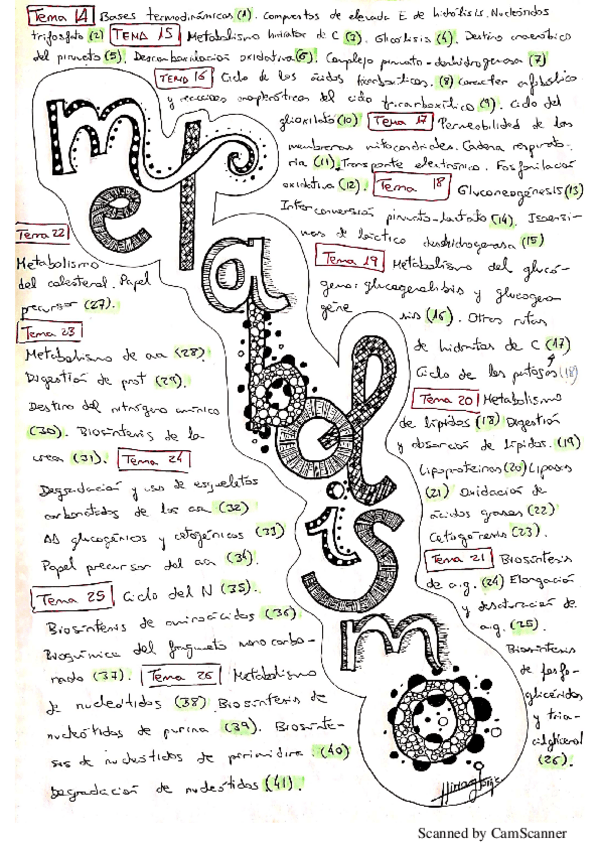 Tema 14 Bases termodinámicas (1). Compuestos de elevada E de hidrólisis. Nucleósidos
trifosfato (2) TEMA 15 Metabolismo hidratos de C (3). Glicólisis (4). Destino anaeróbico
del piruvato (5). Descarboxilación oxidativa (6). Complejo piruvato-deshidrogenasa (7)
TEMA 16 Ciclo de los ácidos tricarboxílicos. (8) Carácter anfibólico
y reacciones anapleróticas del ciclo tricarboxílico (9). Ciclo del
glioxilato (10) Tema 17 Permeabilidad de las
membranas mitocondriales. Cadena respirato-
ria (11). Transporte electrónico. Fosforilación
oxidativa (12). Tema 18 Gluconeogénesis (13)
Interconversión piruvato-lactato (14). Isoenzi-
mas de láctico deshidrogenasa (15)
Tema 19 Metabolismo del glucó-
geno: glucogenolisis y glucogeno
géne sis (16). Otras rutas
de hidratos de C (17)
Ciclo de las pentosas (18)
Tema 20 Metabolismo
de lípidos (18) Digestión
y absorción de lípidos. (19)
Lipoproteínas (20) Lipasas
(21) Oxidación de
ácidos grasos (22)
Cetogénesis (23).
Tema 21 Biosíntesis
de a.g. (24) Elongación
y desaturación de
a.g. (25).
Biosíntesis
de fosfo-
glicéridos
y tria-
cilglicerol
(26).
Tema 22
Metabolismo
del colesterol. Papel
precursor (27).
Tema 23
Metabolismo de aa (28).
Digestión de prot (29).
Destino del nitrógeno amínico
(30). Biosíntesis de la
urea (31). Tema 24
Degradación y uso de esqueletos
carbonados de los aa (32)
AA glucogénicos y cetogénicos (33)
Papel precursor del aa (34).
Tema 25 Ciclo del N (35).
Biosíntesis de aminoácidos (36)
Bioquímica del fragmento monocarbo-
nado (37). Tema 26 Metabolismo
de nucleótidos (38) Biosíntesis de
nucleótidos de purina (39). Biosínte-
sis de nucleótidos de pirimidina. (40)
Degradación de nucleótidos (41).
metabolismo
Scanned by CamScanner